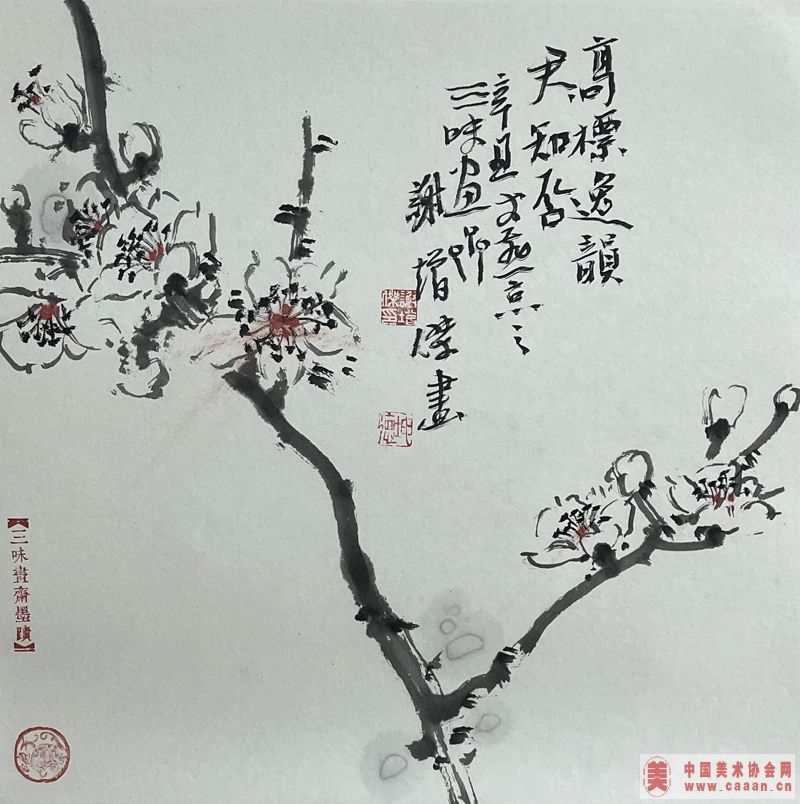 高標逸韻
君知否
辛丑
三味画
謝增傑畫
【三味畫齋墨蹟】
美
中国美术协会网
www.caaan.cn